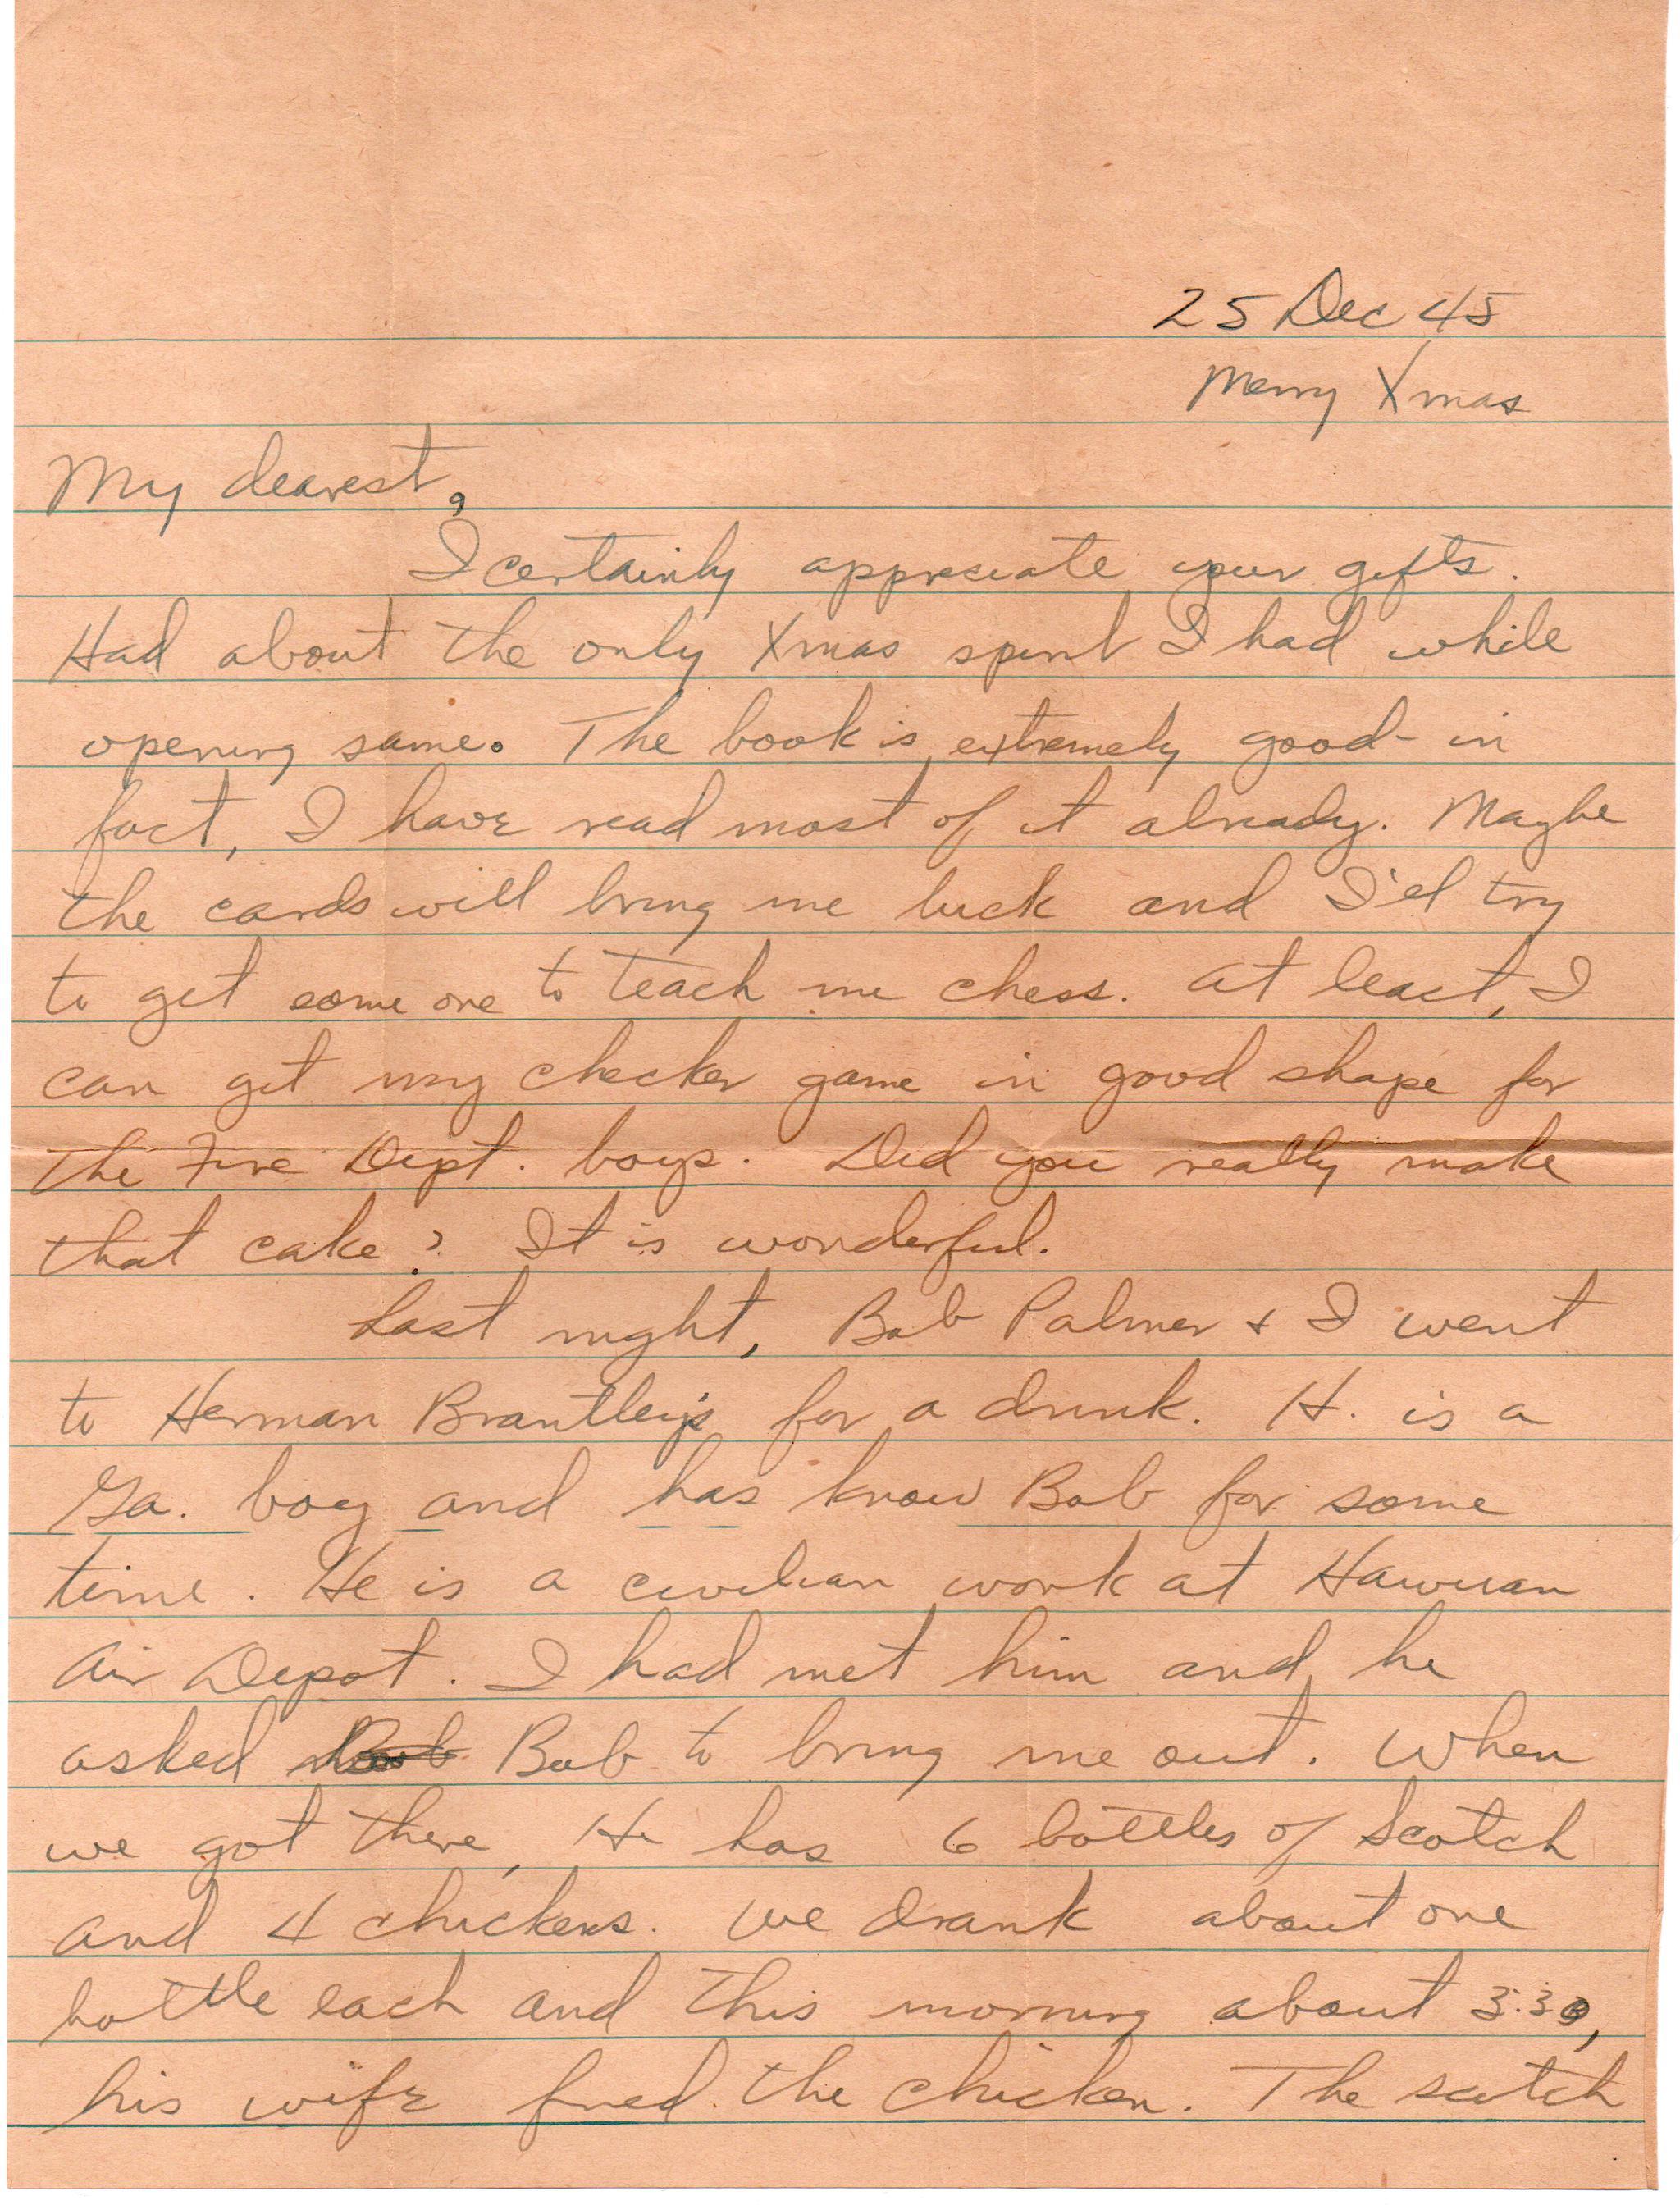 25 Dec 45
Merry Xmas
My dearest,
I certainly appreciate your gifts.
Had about the only Xmas spirit I had while
opening same. The book is extremely good - in
fact, I have read most of it already. Maybe
the cards will bring me luck and I'll try
to get some one to teach me chess. At least, I
can get my checker game in good shape for
the Fire Dept. boys. Did you really make
that cake? It is wonderful.
Last night, Bob Palmer + I went
to Herman Brantley's for a drink. H. is a
Ga. boy and has know Bob for some
time. He is a civilian work at Hawiian
Air Depot. I had met him and he
asked Bob to bring me out. When
we got there, He has 6 bottles of Scotch
and 4 chickens. We drank about one
bottle each and this morning about 3:30,
his wife fried the chicken. The scotch